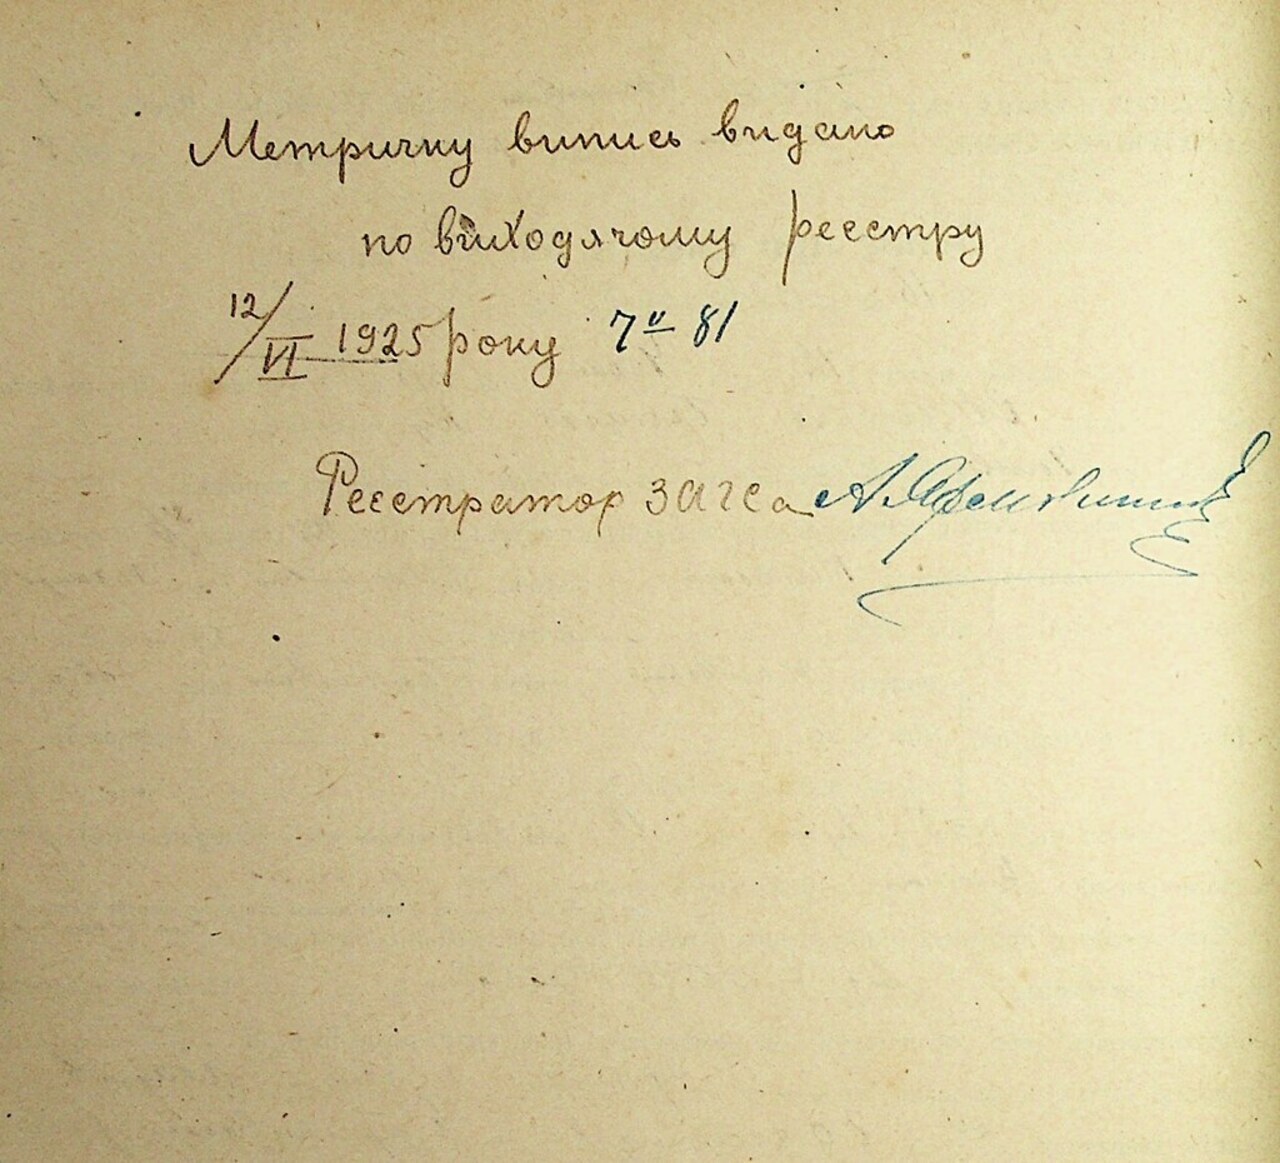 Метричну випись видано
по виходячому реєстру
12/VI 1925 року 7 81
Реєстратор загса А.